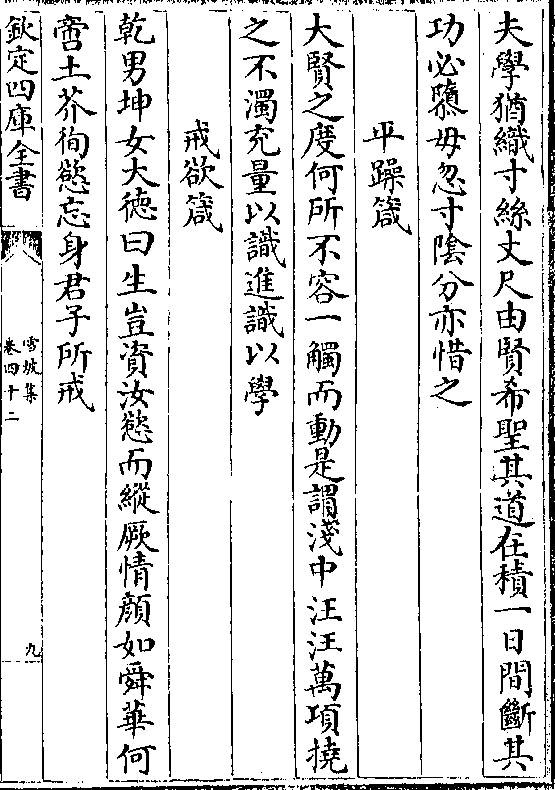 夫學猶織寸絲丈尺由賢希聖其道在積一日間斷其
功必隳毋忽寸陰分亦惜之
平躁箴
大賢之度何所不容一觸而動是謂淺中汪汪萬頃撓
之不濁充量以識進識以學
戒欲箴
乾男坤女大德曰生豈資汝慾而縱厥情顔如舜華何
啻土芥徇慾忘身君子所戒
欽定四庫全書
雪坡集
卷四十二
九